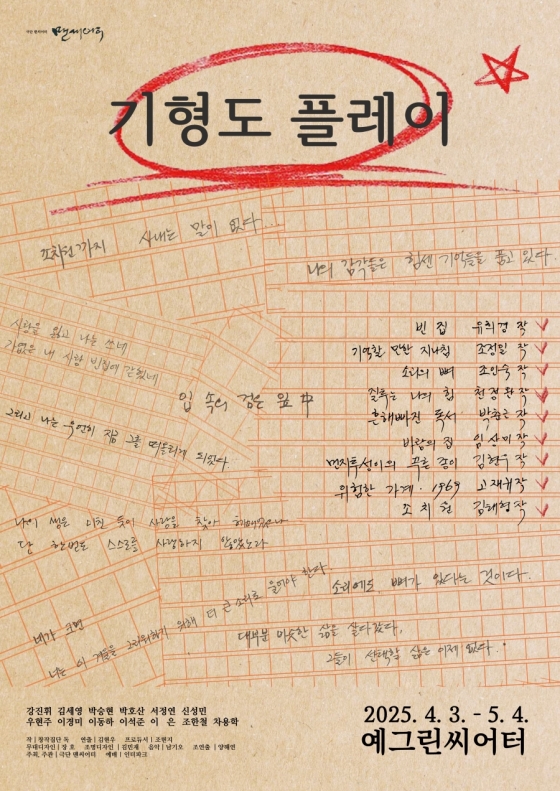 극단 맨씨어터 맨씨어터
기형도 플레이
조치원까지 사내는 말이 없다...
나의 감각들은 힘센 기억들을 품고 있다.
사랑을 잃고 나는 쓰네
가엾은 내 사랑 빈집에 갇혔네
입 속의 검은 잎 中
그리고 나는 우연히 지금 그를 떠올리게 되었다
빈 집 유희경 작
기억할 만한 지나침 조정일 작
소리의 뼈 조인숙 작
질투는 나의 힘 천정완 작
흔해빠진 독서 박춘근 작
바람의 집 임상미 작
먼지투성이의 푸른 종이 김현우 작
위험한 가계·1969 고재귀 작
조치원 김태형 작
나의 생은 미친 듯이 사랑을 찾아 헤매었으나
단 한번도 스스로를 사랑하지 않았노라
네가 크면
너는 이 겨울을 그리워하기 위해 더 큰 소리로 울어야 한다
소리에도 뼈가 있다는 것이다.
대부분 비슷한 삶을 살다갔다,
그들이 선택할 삶은 이제 없다.
강진휘 김세영 박승현 박호산 서정연 신성민
우현주 이경미 이동하 이석준 이 은 조한철 차용학
작 | 창작집단 독 연출 | 김현우 프로듀서 | 조현지
무대디자인 | 장 호 조명디자인 | 김민재 음악 | 남기오 조연출 | 양예연
주최, 주관 | 극단 맨씨어터 예매 | 인터파크
2025. 4. 3. - 5. 4.
예그린씨어터